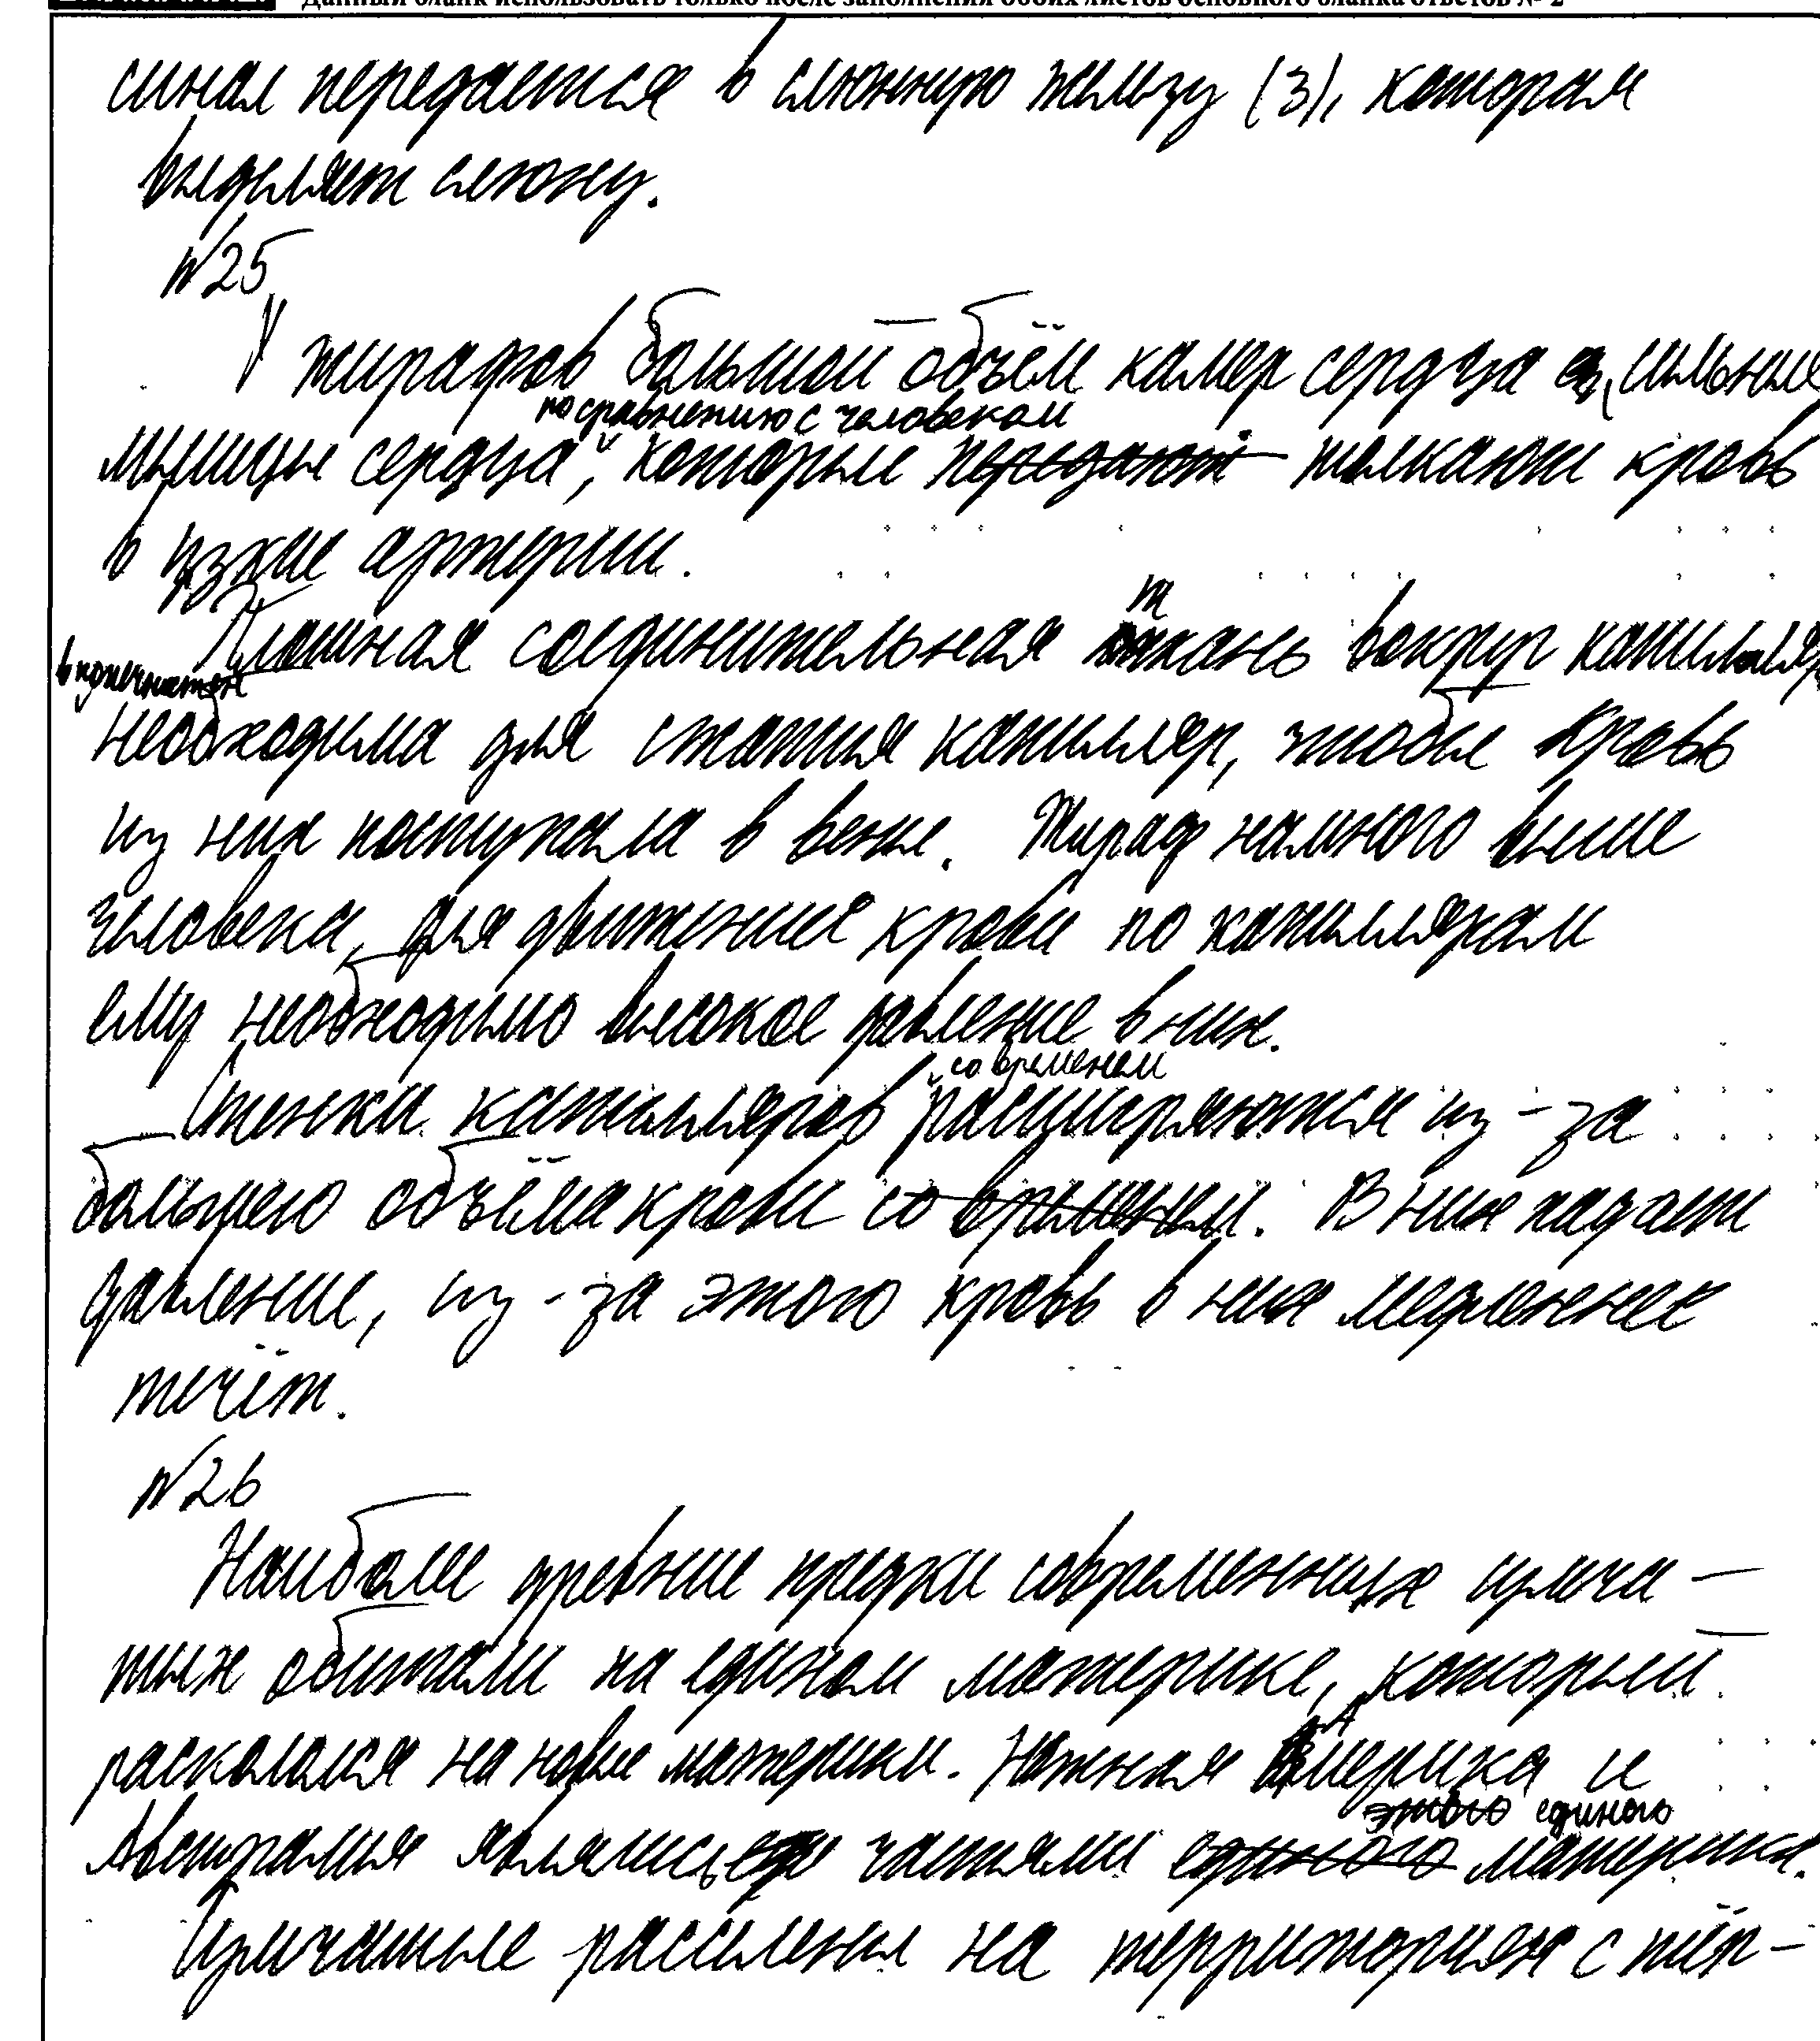 Данный бланк использовать только после заполнения обоих листов основного бланка ответов № 2
синал передаётся в слюнную железу (3), которая
выделяет слюну.
№25
У жирафов большой объём камер сердца и, сильные
по сравнению с человеком
мышцы сердца, которые передают толкают кровь
в узкие артерии.
Плотная соединительная ткань вокруг капилляр
в конечностях
необходима для сжатия капилляр, чтобы кровь
из них поступала в вены. Жираф намного выше
человека, для движения крови по капиллярам
ему необходимо высокое давление в них.
со временем
Стенки капилляров расширяются из-за
большего объёма крови со временем. В них падает
давление, из-за этого кровь в них медленнее
течёт.
№26
Наиболее древние предки современных цвича-
тых обитали на едином материке, который
раскололся на новые материки. Южная Америка и
этого единого
Австралия являлись частями единого материка.
расселены на территориях с тёп-